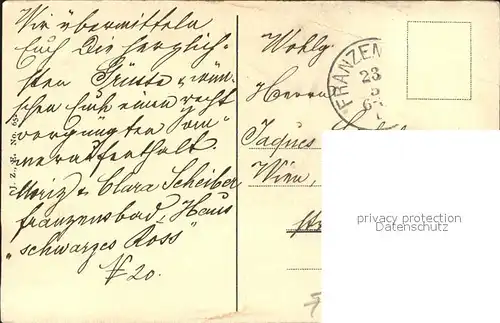 Wir übermitteln
Euch die herzlich-
sten Grüsse u. wün-
schen Euch einen recht
vergnügten Som-
meraufenthalt.
Moriz u. Clara Scheiber
Franzensbad, Haus
"schwarzes Ross"
N 20.
Wohlg.
Herrn
Jaques
Wien,
FRANZEN
23
5
privacy protection
Datenschutz